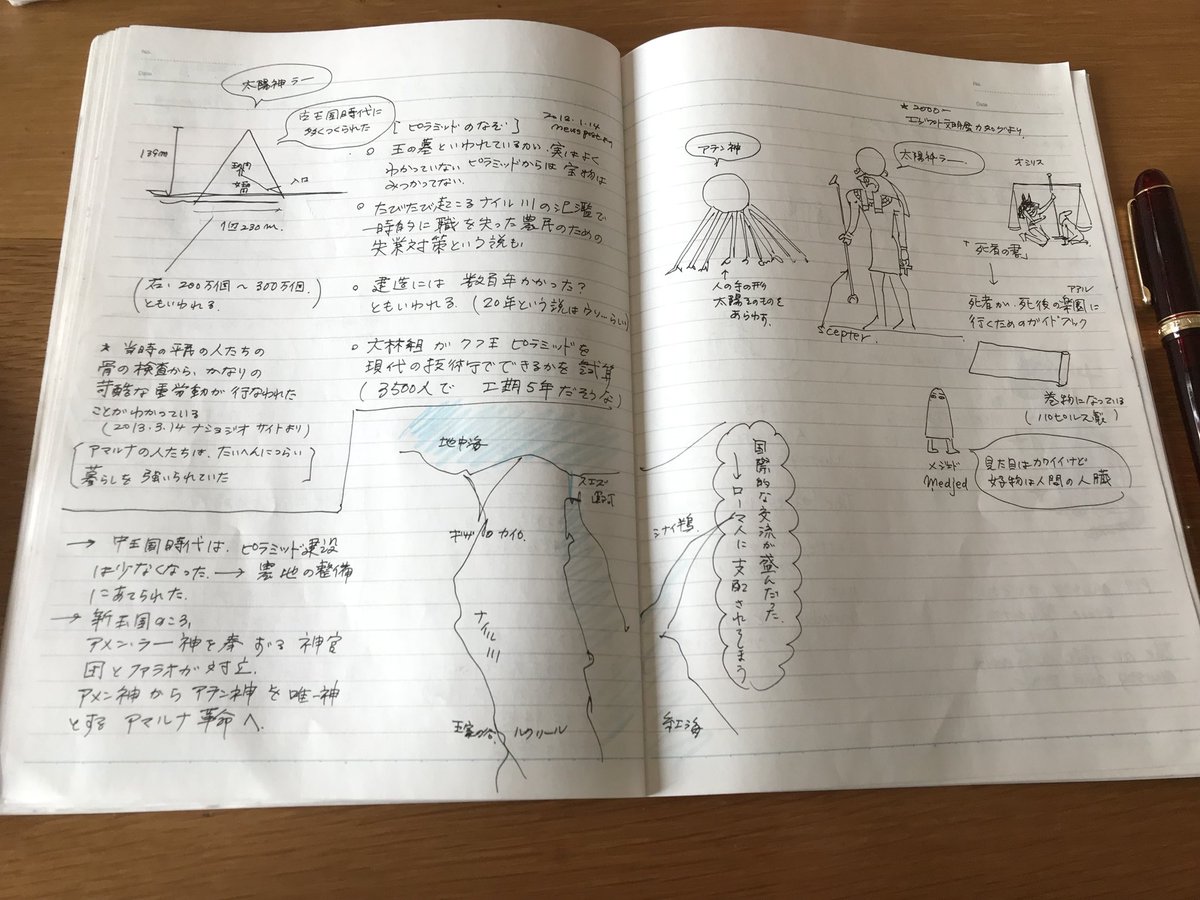 太陽神ラー
古王国時代に
多くつくられた
139m
入口
1辺230m.
(石、200万個〜300万個.
ともいわれる.)
[ピラミッドのなぞ]
○ 王の墓といわれているが、実はよく
わかっていない ピラミッドからは宝物は
みつかってない.
○ たびたび起こるナイル川の氾濫で
一時的に職を失った農民のための
失業対策という説も
○ 建造には 数百年かかった?
ともいわれる. (20年という説はウソ…らしい)
○ 大林組がクフ王ピラミッドを
現代の技術でできるかを試算
(3500人で 工期5年だそうな)
* 当時の平民の人たちの
骨の検査から、かなりの
苛酷な重労働が行なわれた
ことがわかっている
(2013.3.14 ナショジオ サイトより)
[アマルナの人たちは、たいへんにつらい
暮らしを強いられていた]
→ 中王国時代は、ピラミッド建設
は少なくなった. → 墓地の整備
にあてられた.
→ 新王国のころ,
アメン・ラー神を奉ずる 神官
団とファラオが対立.
アメン神から アテン神を唯一神
とする アマルナ革命へ.
地中海
スエズ
運河
ギザ
カイロ
ナイル川
王家の谷
ルクソール
シナイ半島.
紅海
国際的な交流が盛んだった.
→ローマ人に支配されてしまう
* 2000
アテン神
↑
人の手の形
太陽そのものを
あらわす.
太陽神ラー.
scepter.
オシリス
「死者の書」
↓
死者が、死後の楽園に
アアル
行くためのガイドブック
巻物になっている
(パピルス製)
メジェド
Medjed
見た目はカワイイけど
好物は人間の人臓